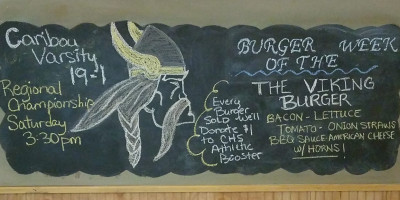 Caribou
Varsity
19-1
Regional
Championship
Saturday
3:30pm
Every
Burger
Sold we'll
Donate $1
to CHS
Athletic
Booster
BURGER WEEK
OF THE
THE VIKING
BURGER
BACON - LETTUCE
TOMATO - ONION STRAWS
BBQ SAUCE AMERICAN CHEESE
W/ HORNS!